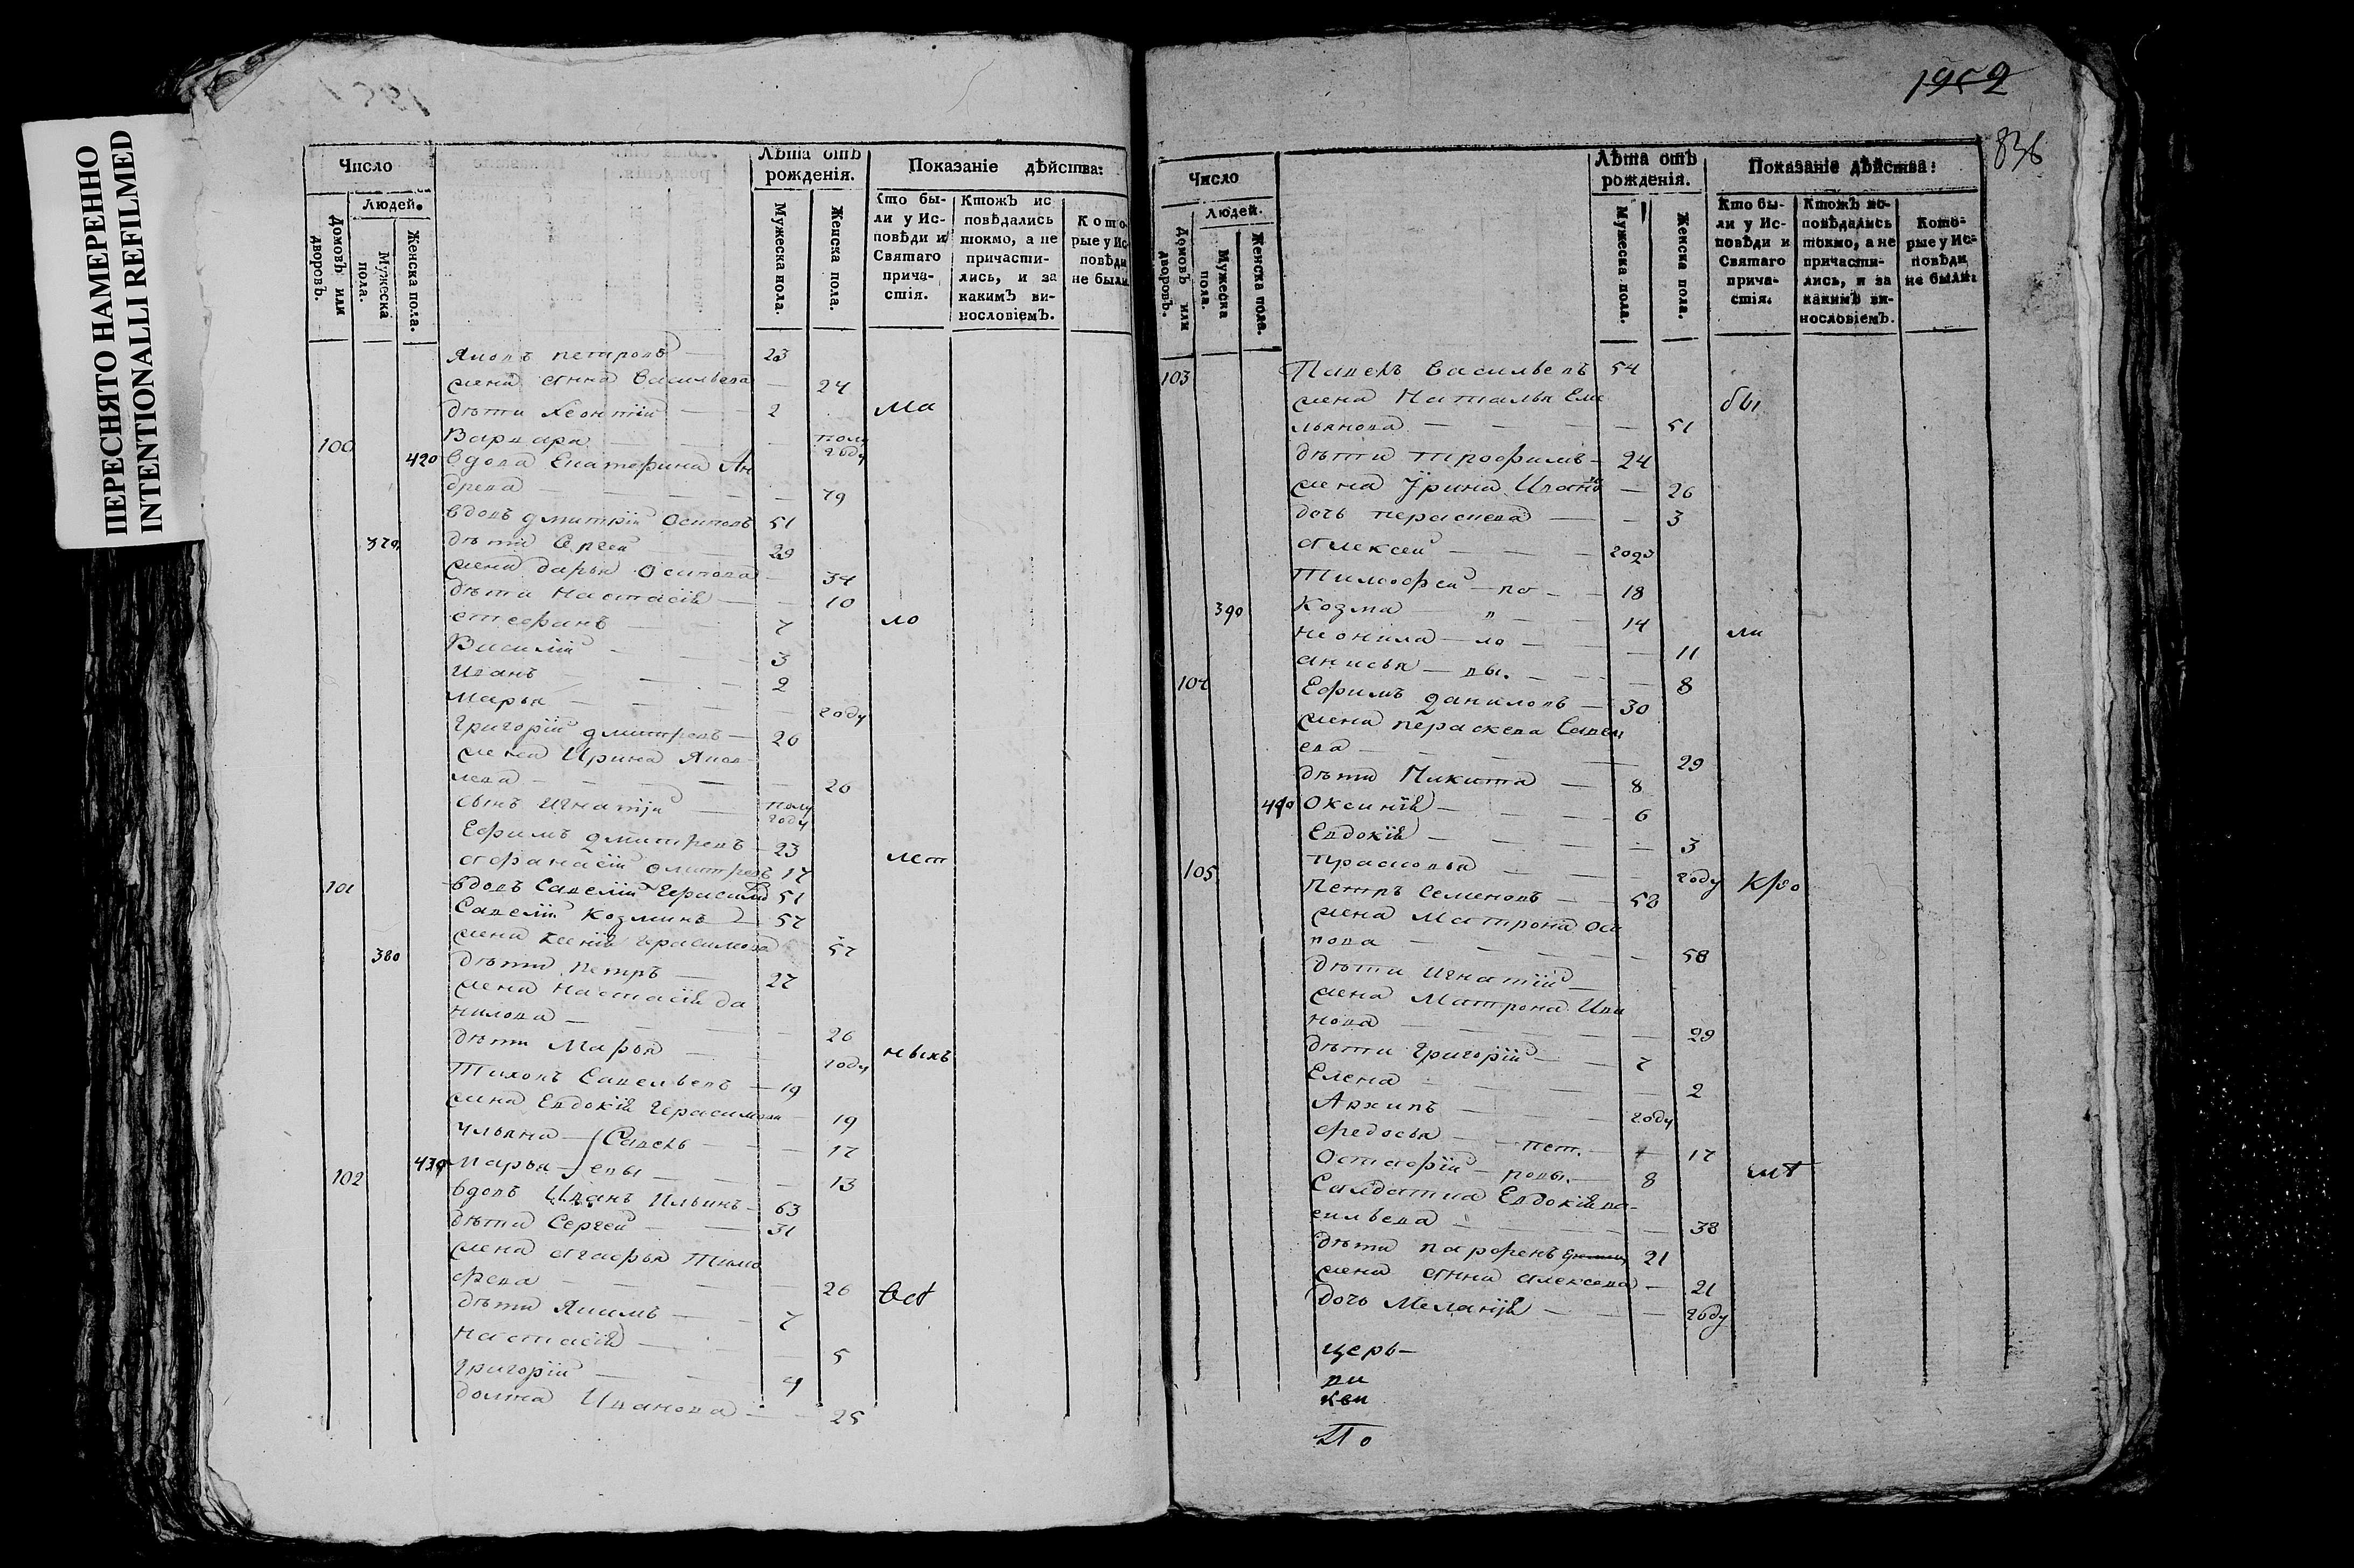 ПЕРЕСНЯТО НАМЕРЕННО
INTENTIONALLI REFILMED
Число
Людей.
Домовъ или дворовъ.
Мужеска пола.
Женска пола.
Лѣта отъ рожденія.
Мужеска пола.
Женска пола.
Показаніе дѣйства:
Кто были у Исповѣди и Святаго причастія.
Ктожъ исповѣдались токмо, а не причастились, и за какимъ винословіемъ.
Которые у Исповѣди не были
Яковъ петровъ — 23
жена Анна Васильева — 24
дѣти Леонтій — 2 ма
Варвара — полу году
100 420 вдова Екатерина Ан
дреева — 79
вдовъ дмитрій Осиповъ 51
дѣти Сергей — 29
жена дарья Осипова — 34
дѣти Настасія — 10
стефанъ — 7 ло
Василій — 3
Иванъ — 2
Марья — году
григорій дмитревъ — 26
жена Ирина Яков
лева — 26
сынъ Игнатій — полу году
Ефимъ дмитревъ — 23 лет
Афанасій дмитревъ 17
101 вдовъ Савелій Герасимов 51
Савелій Козминъ 57
жена Ксенія Герасимова 57
380 дѣти петръ — 27
жена настасія да
нилова — 26
дѣти Марья — году ныхъ
Тихонъ Савельевъ — 19
жена Евдокія Герасимова — 19
Ульяна — Савель — 17
марья — евы — 13
102 вдовъ Иванъ Ильинъ — 63
дѣти Сергей — 31
жена Агафья Тимо
феева — 26
дѣти Якимъ — 7
настасія — 5
григорій — 4
Иванова — 25
1902
836
Число
Людей.
Домовъ или дворовъ.
Мужеска пола.
Женска пола.
Лѣта отъ рожденія.
Мужеска пола.
Женска пола.
Показаніе дѣйства:
Кто были у Исповѣди и Святаго причастія.
Ктожъ исповѣдались токмо, а не причастились, и за какимъ винословіемъ.
Которые у Исповѣди не были.
103 Павелъ Васильевъ 54
жена Наталья Еме бы
льянова — 51
дѣти трофимъ — 24
жена Ирина Иванов — 26
дочь пераскева — 3
Алексей — году
Тимофей — па — 18
390 Козма — " — 14
неонила — ло — 11 ли
анисья — вы. — 8
104 Ефимъ даниловъ — 30
жена пераскева Савел
ева — 29
дѣти Никита — 8
Оксинія — 6
Евдокія — 3
прасковья — году
105 петръ Семеновъ — 58 кро
жена Матрона Оси
пова — 58
дѣти Игнатій —
жена Матрона Ива
нова — 29
дѣти григорій — 7
Елена — 2
Архипъ — году
федосья — пет. — 17
Остафій — ровы. — 8
Салдатка Евдокія ва-
сильева — 38
дѣти парфенъ 21
жена Анна Алексеева — 21
дочь Меланія — году
церь-
ви
кви
По